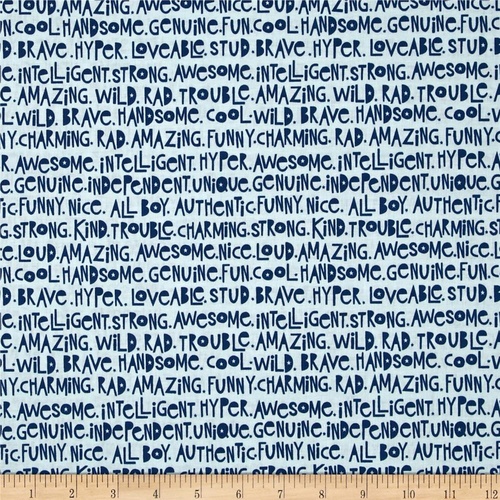 E.LOUD.AMAZING.AWESOME.NICE.LOUD.AMAZING.AWESOME.NICE
UN.COOL.HANDSOME.GENUINE.FUN.COOL.HANDSOME.GENUINE.FU
D.BRAVE.HYPER.LOVEABLE.STUD.BRAVE.HYPER.LOVEABLE.STUD.B
E.INTELLIGENT.STRONG.AWESOME.INTELLIGENT.STRONG.AWESOM
E.AMAZING.WILD.RAD.TROUBLE.AMAZING.WILD.RAD.TROUBLE.
OL.WILD.BRAVE.HANDSOME.COOL.WILD.BRAVE.HANDSOME.COOL.W
NY.CHARMING.RAD.AMAZING.FUNNY.CHARMING.RAD.AMAZING.FUNNY.
R.AWESOME.INTELLIGENT.HYPER.AWESOME.INTELLIGENT.HYPER.A
E.GENUINE.INDEPENDENT.UNIQUE.GENUINE.INDEPENDENT.UNIQUE.G
NTIC.FUNNY.NICE.ALL BOY.AUTHENTIC.FUNNY.NICE.ALL BOY.AUTHEN
G.STRONG.KIND.TROUBLE.CHARMING.STRONG.KIND.TROUBLE.CHARM
E.LOUD.AMAZING.AWESOME.NICE.LOUD.AMAZING.AWESOME.NICE.
UN.COOL.HANDSOME.GENUINE.FUN.COOL.HANDSOME.GENUINE.FU
D.BRAVE.HYPER.LOVEABLE.STUD.BRAVE.HYPER.LOVEABLE.STUD.B
E.INTELLIGENT.STRONG.AWESOME.INTELLIGENT.STRONG.AWESOM
E.AMAZING.WILD.RAD.TROUBLE.AMAZING.WILD.RAD.TROUBLE.
OL.WILD.BRAVE.HANDSOME.COOL.WILD.BRAVE.HANDSOME.COOL.W
NY.CHARMING.RAD.AMAZING.FUNNY.CHARMING.RAD.AMAZING.FUNNY.
R.AWESOME.INTELLIGENT.HYPER.AWESOME.INTELLIGENT.HYPER.A
E.GENUINE.INDEPENDENT.UNIQUE.GENUINE.INDEPENDENT.UNIQUE.G
NTIC.FUNNY.NICE.ALL BOY.AUTHENTIC.FUNNY.NICE.ALL BOY.AUTHEN
STRONG.KIND.TROUBLE.CHARMING.STRONG.KIND.TROUBLE.CHARM
1 2 3 4 5 6 7 8 9 10 11 12